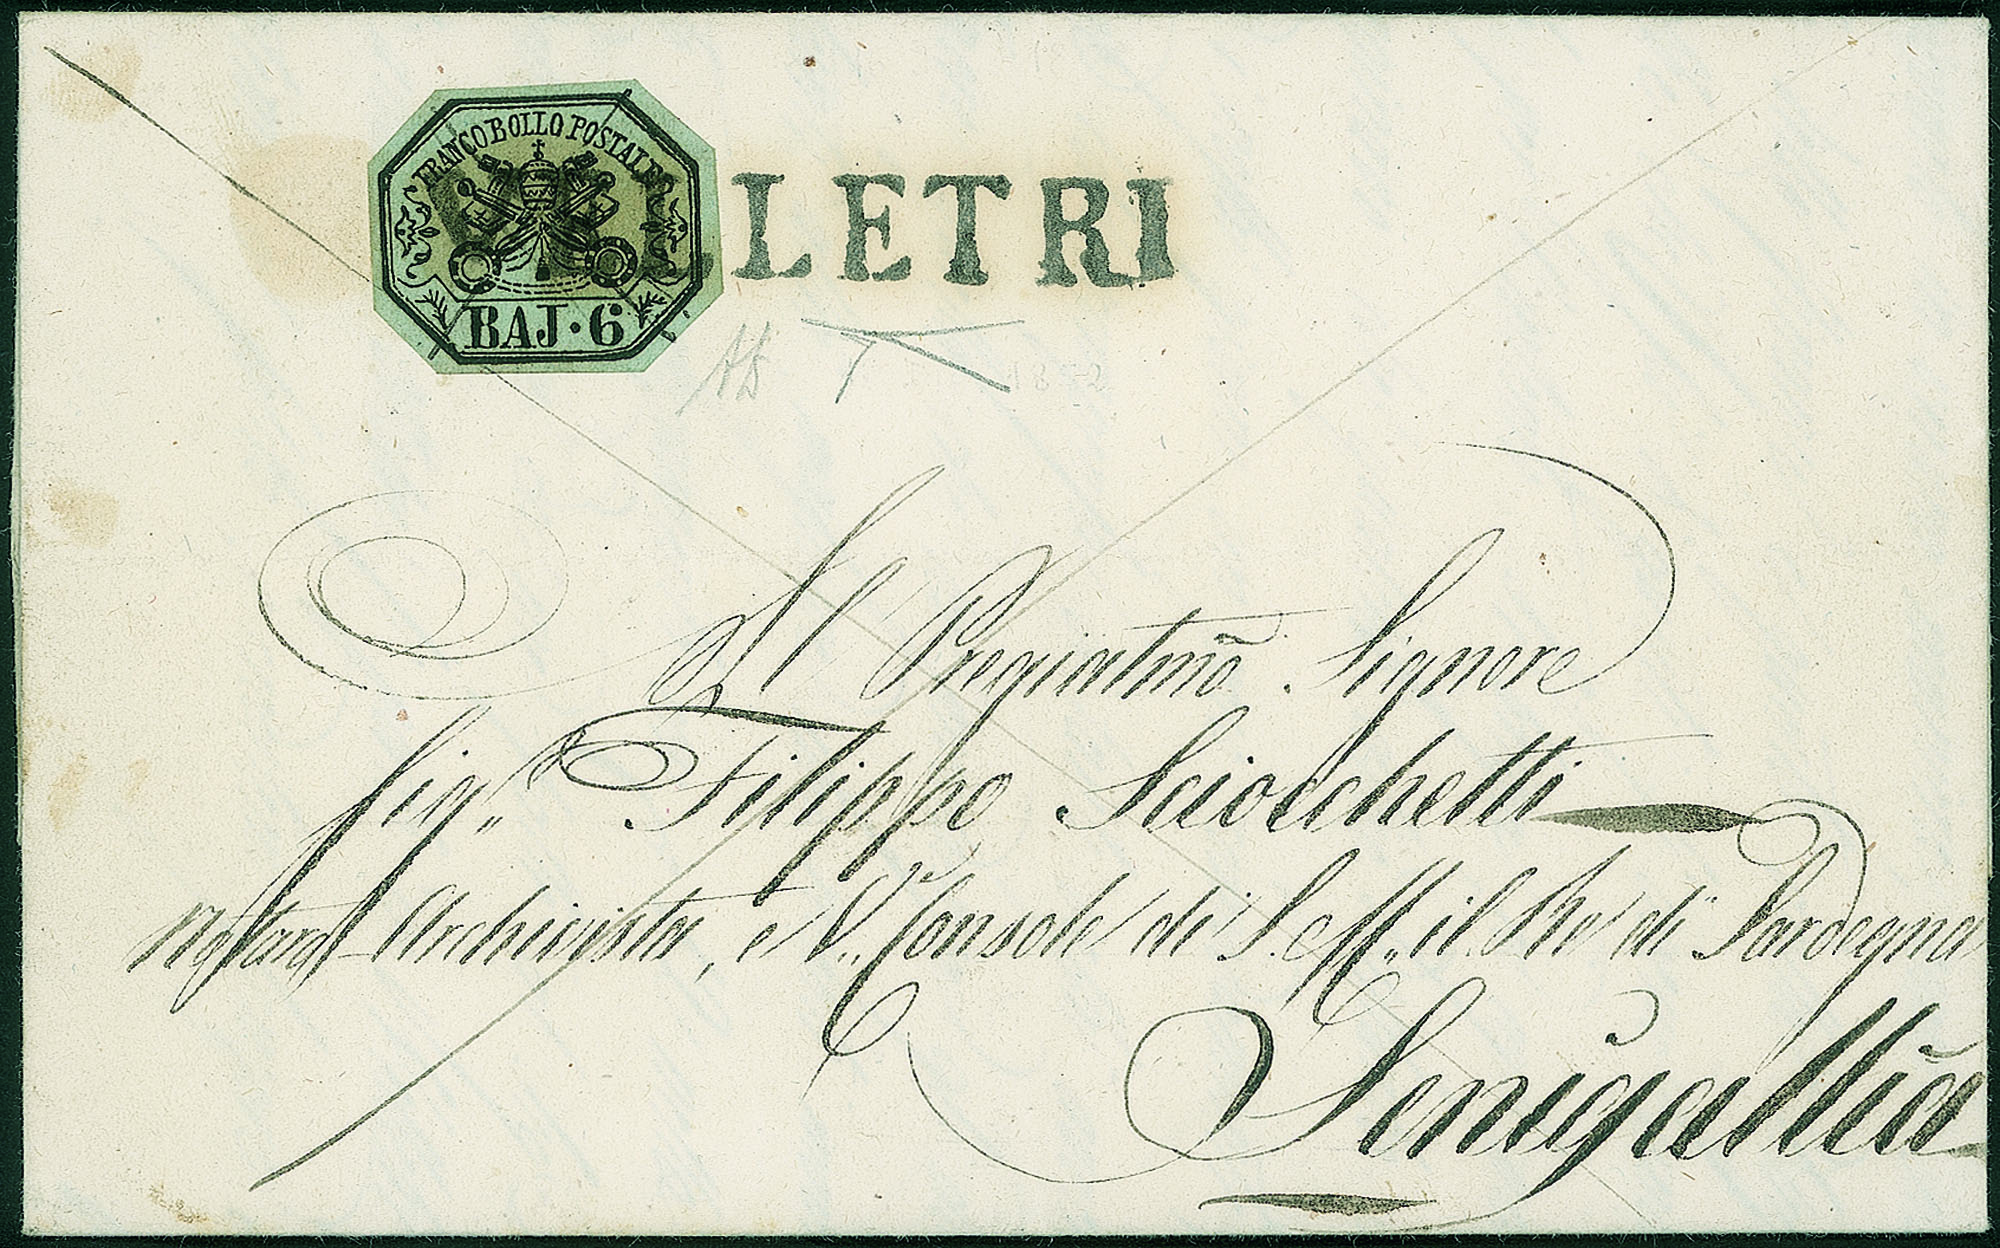 FRANCO BOLLO POSTALE
BAJ·6
LETRI
Al Pregiatmo Signore
Sig" Filippo Sciocchetti
Notaro Archivista, e V. Console di S. M. il Re di Sardegna
Senigallia